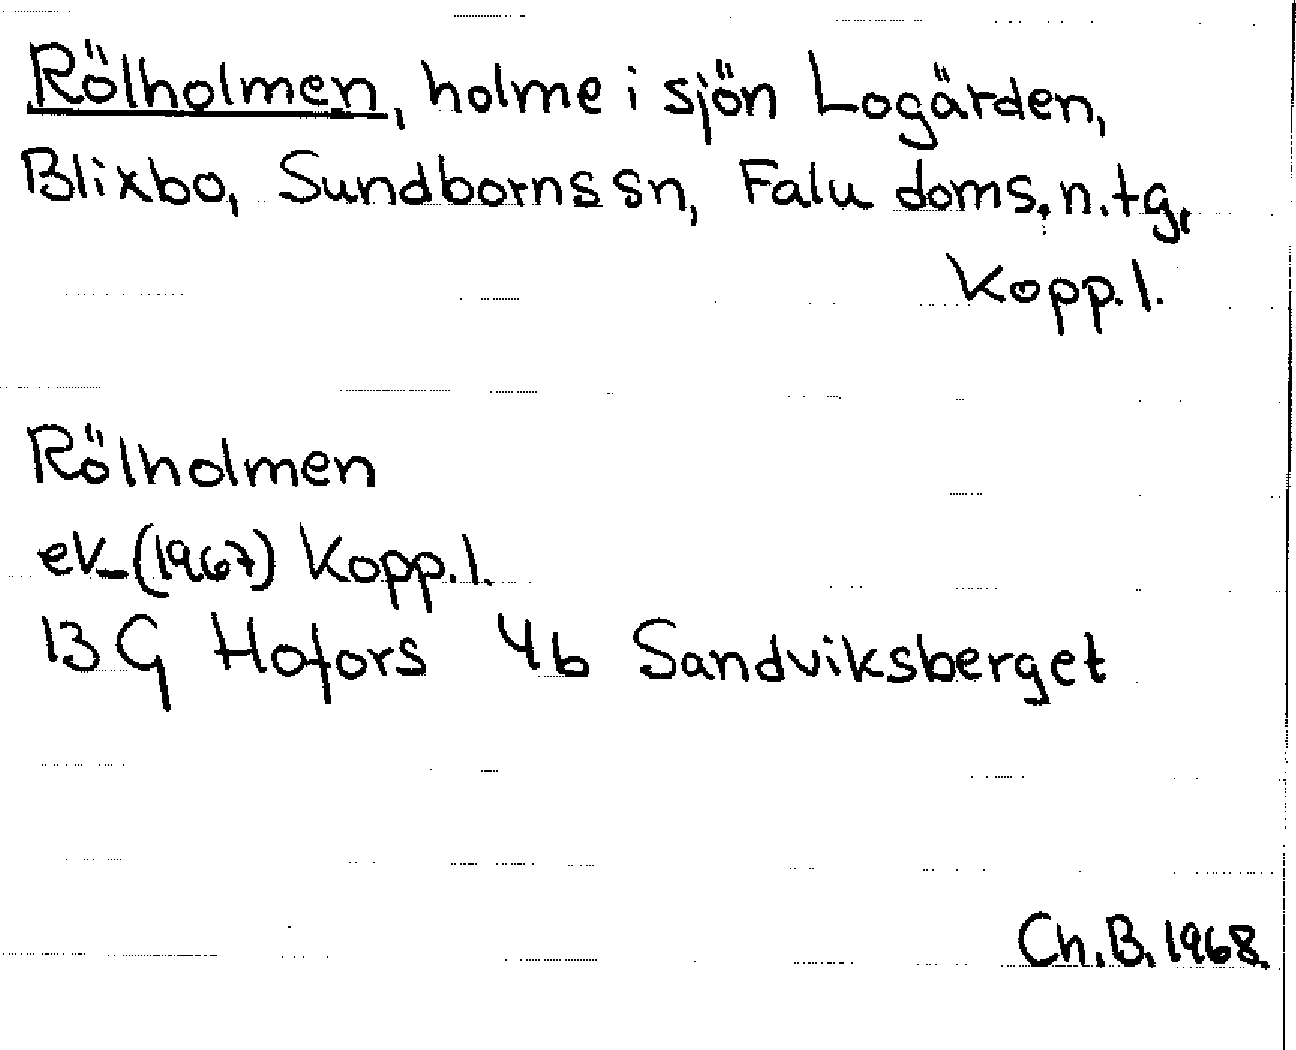 Rölholmen, holme i sjön Logärden,
Blixbo, Sundborns sn, Falu doms. n. tg,
Kopp. l.
Rölholmen
eK (1967) Kopp. l.
13 G Hofors 4b Sandviksberget
Ch. B. 1968